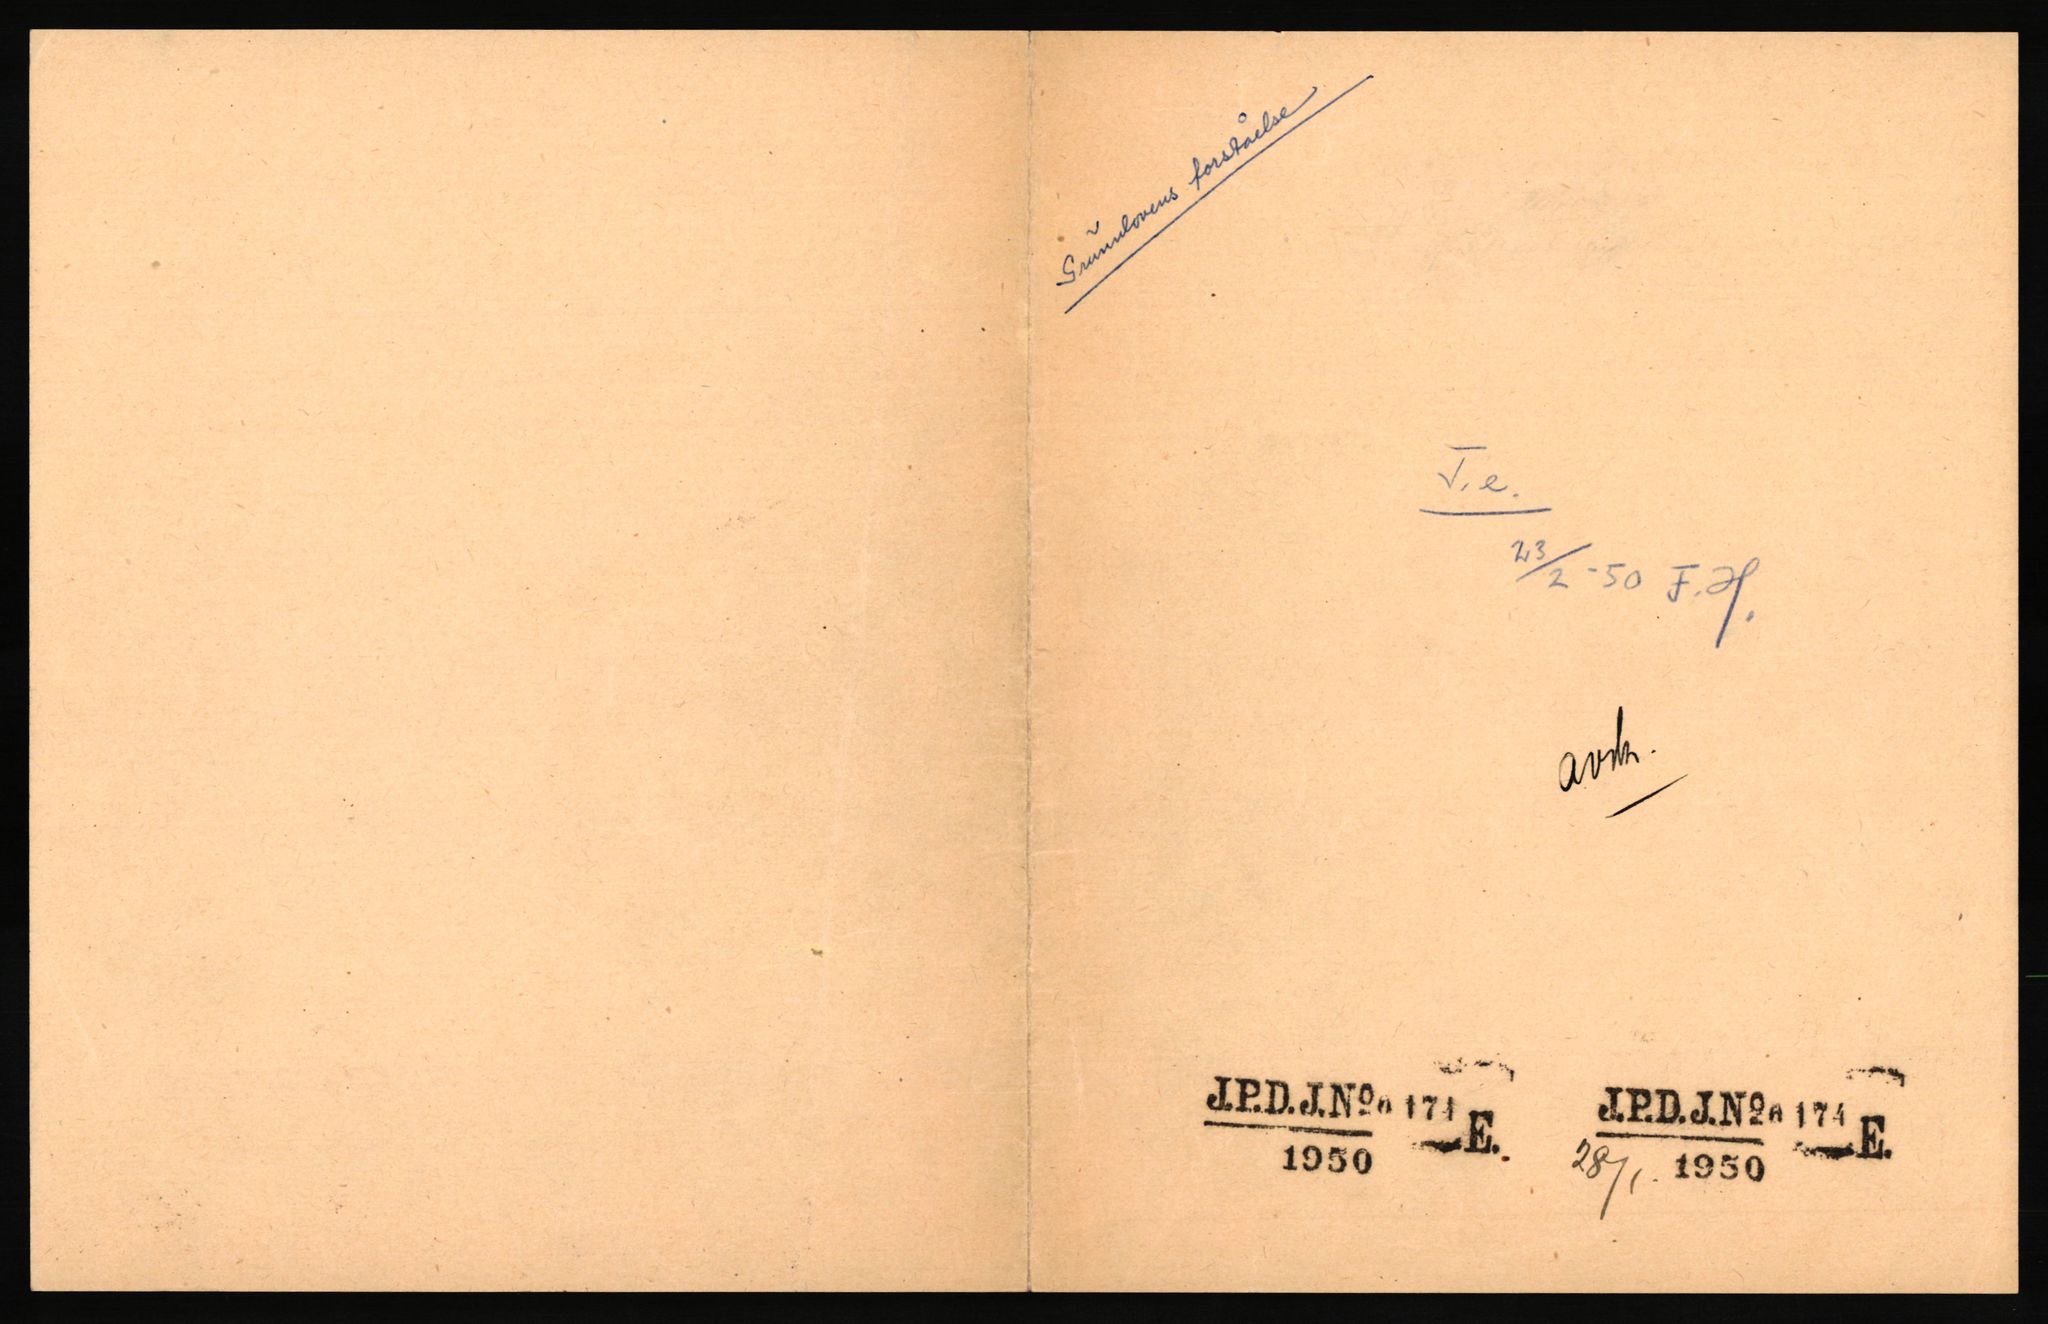 Grunnlovens forståelse
T.e.
23/2-50 F.H.
J.P.D.J.Nº 0174 E.
1950
J.P.D.J.Nº 0174 E.
28/1. 1950